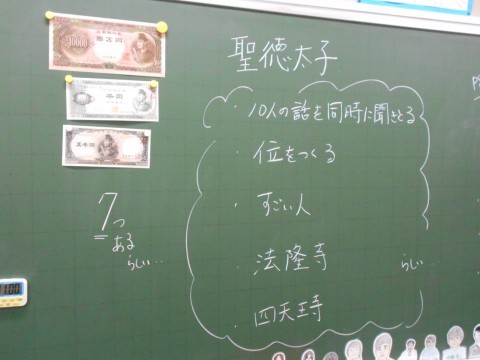 10000
壱万円
千円
五千円
7つ
ある
らしい…
聖徳太子
・10人の話を同時に聞きとる
・位をつくる
・すごい人
・法隆寺
・四天王寺
らしい…